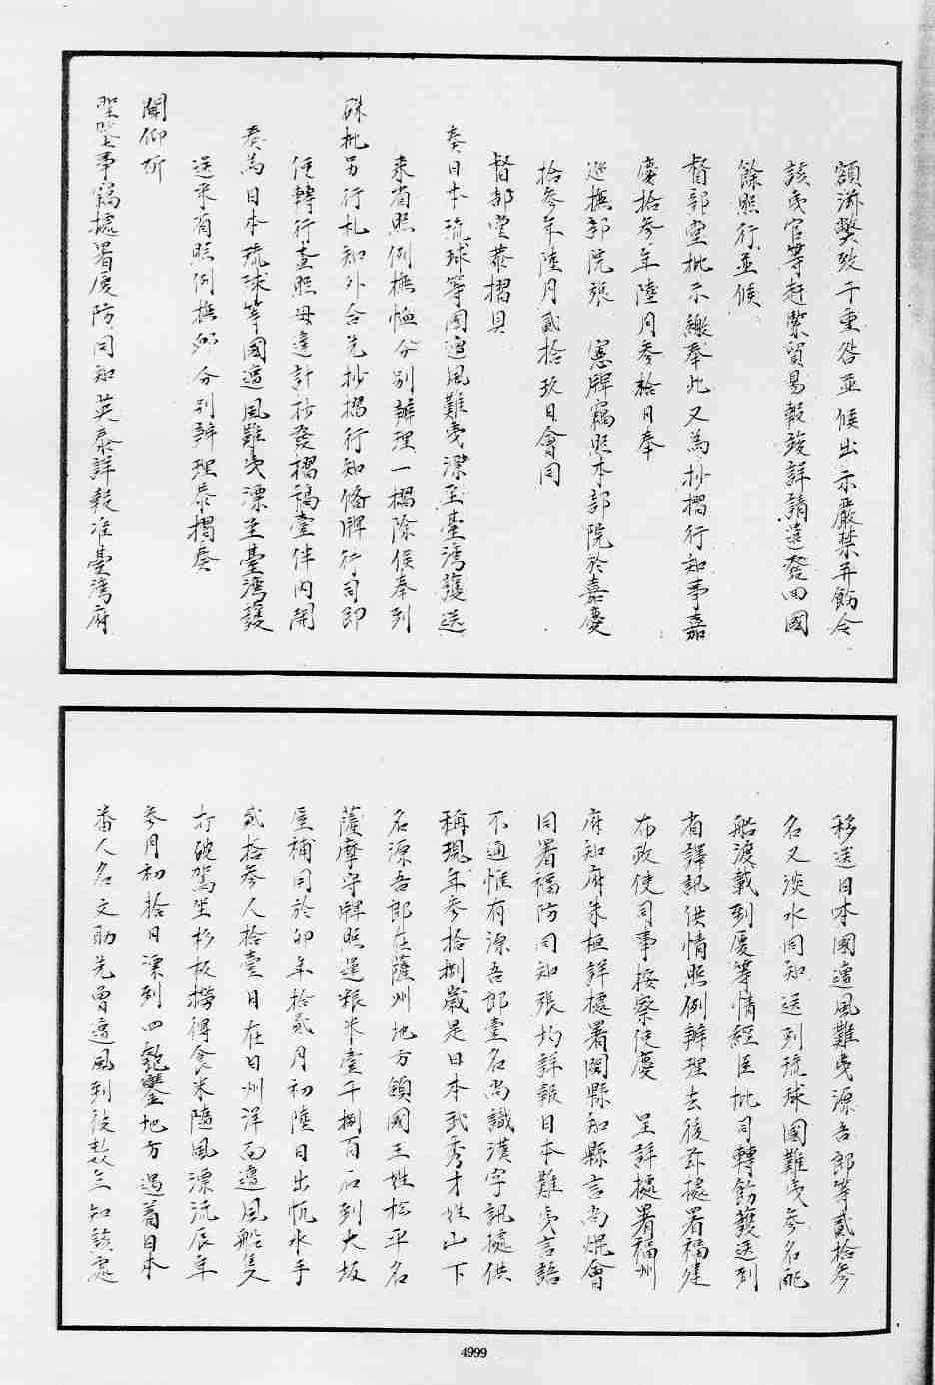 額滋弊致干重咎並候出示嚴禁并飭令
該夷官等赶緊貿易報竣詳請遣發回國
餘照行並候
督部堂批示繳奉此又為抄摺行知事嘉
慶拾參年陸月參拾日奉
巡撫部院張　憲牌竊照本部院於嘉慶
拾參年陸月貳拾玖日會同
督部堂恭摺具
奏日本琉球等國遭風難夷漂至臺灣護送
來省照例撫恤分別辦理一摺除俟奉到
硃批另行札知外合先抄摺行知備牌行司即
便轉行查照毋違計抄發摺稿壹件內開
奏為日本琉球等國遭風難夷漂至臺灣護
送來省照例撫卹分別辦理恭摺奏
聞仰祈
聖鑒事竊據署廈防同知英泰詳報准臺灣府
移送日本國遭風難夷源吾郎等貳拾參
名又淡水同知送到琉球國難夷參名配
船渡載到廈等情經臣批司轉飭護送到
省譯訊供情照例辦理去後茲據署福建
布政使司事按察使慶　呈詳據署福州
府知府朱桓詳據署閩縣知縣言尚焜會
同署福防同知張均詳報日本難夷言語
不通惟有源吾郎壹名尚識漢字訊據供
稱現年參拾捌歲是日本武秀才姓山下
名源吾郎在薩州地方鎮國王姓松平名
薩摩守牌照運粮米壹千捌百石到大坂
屋補同於卯年拾貳月初陸日出帆水手
貳拾參人拾壹日在日州洋面遭風船隻
打破駕坐杉板撈得食米隨風漂流辰年
參月初拾日漂到四鬯鑾地方遇着日本
番人名文助先曾遭風到彼故知該處